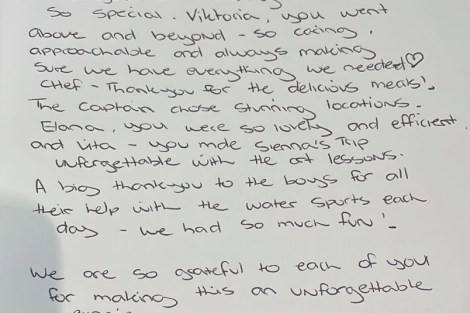 So special. Viktoria, you went
above and beyond - so caring,
approachable and always making
sure we have everything we needed♡
Chef - Thankyou for the delicious meals!
The captain chose stunning locations.
Elana, you were so lovely and efficient.
and Vita - you made Sienna's Trip
unforgettable with the art lessons.
A big thankyou to the boys for all
their help with the water sports each
day - we had so much fun!
We are so grateful to each of you
for making this an unforgettable